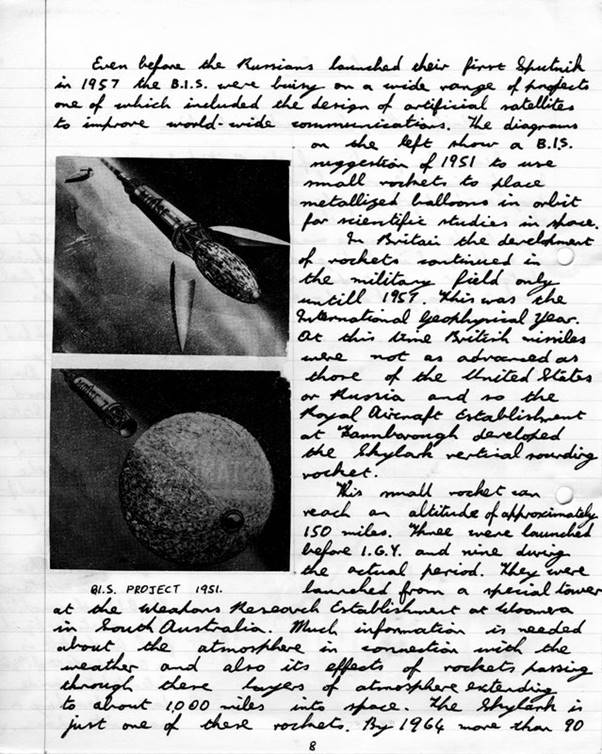 Even before the Russians launched their first Sputnik
in 1957 the B.I.S. were buisy on a wide range of projects
one of which included the design of artificial satellites
to improve world-wide communications. The diagrams
on the left show a B.I.S.
suggestion of 1951 to use
small rockets to place
metallized balloons in orbit
for scientific studies in space.
In Britain the development
of rockets continued in
the military field only
untill 1957. This was the
International Geophysical Year.
At this time British missiles
were not as advanced as
those of the United States
or Russia and so the
Royal Aircraft Establishment
at Farnborough developed
the Skylark vertical sounding
rocket.
This small rocket can
reach an altitude of approximately
150 miles. Three were launched
before I.G.Y. and nine during
the actual period. They were
launched from a special tower
B.I.S. PROJECT 1951.
at the Weapons Research Establishment at Woomera
in South Australia. Much information is needed
about the atmosphere in connection with the
weather and also its effects of rockets passing
through these layers of atmosphere extending
to about 1,000 miles into space. The Skylark is
just one of these rockets. By 1964 more than 90
8